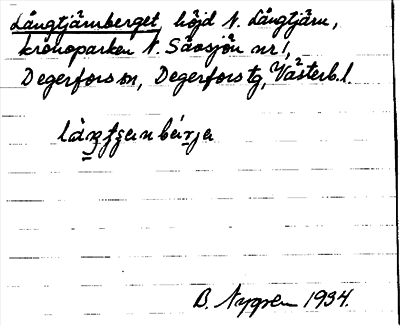 Långtjärnberget, höjd N. Långtjärn,
kronoparken N. Sävsjön nr 1,
Degerfors sn, Degerfors tg, Västerb. l.
B. Nygren 1934.